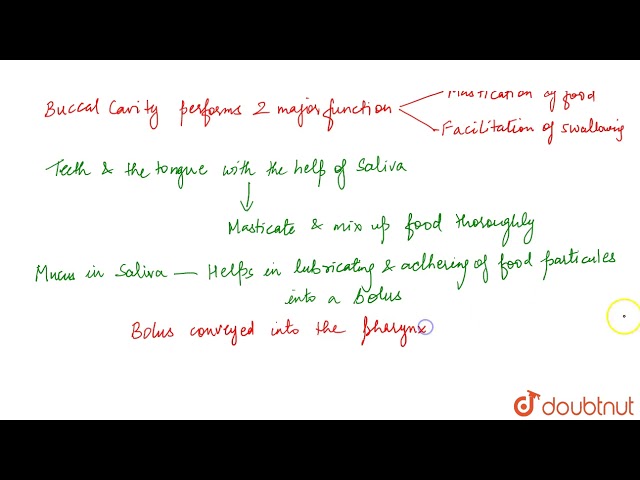 Mastication of food
Buccal Cavity performs 2 major function
Facilitation of swallowing
Teeth & the tongue with the help of Saliva
Masticate & mix up food thoroughly
Mucus in Saliva — Helps in lubricating & adhering of food particules
into a bolus
Bolus conveyed into the pharynx
doubtnut